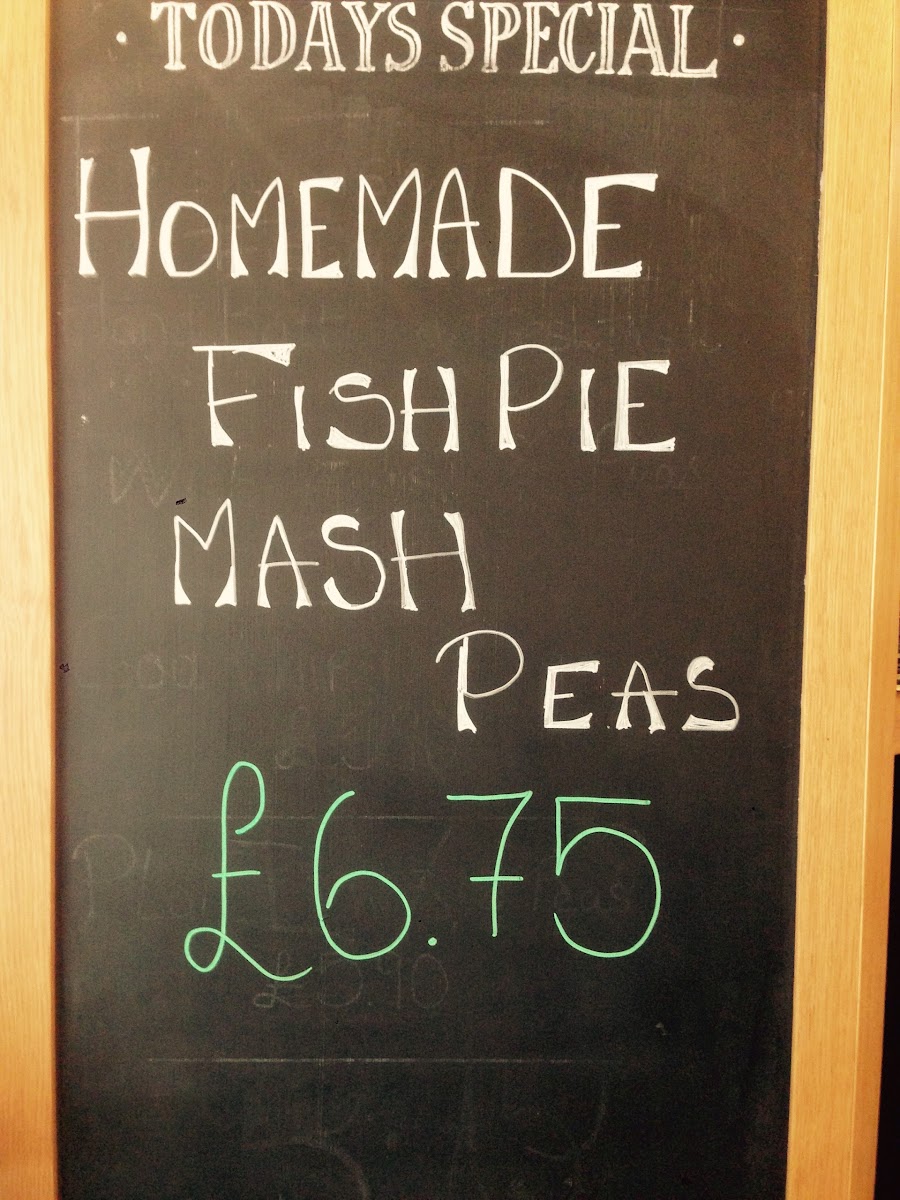 · TODAYS SPECIAL ·
HOMEMADE
FISH PIE
MASH
PEAS
£6.75
£5.90